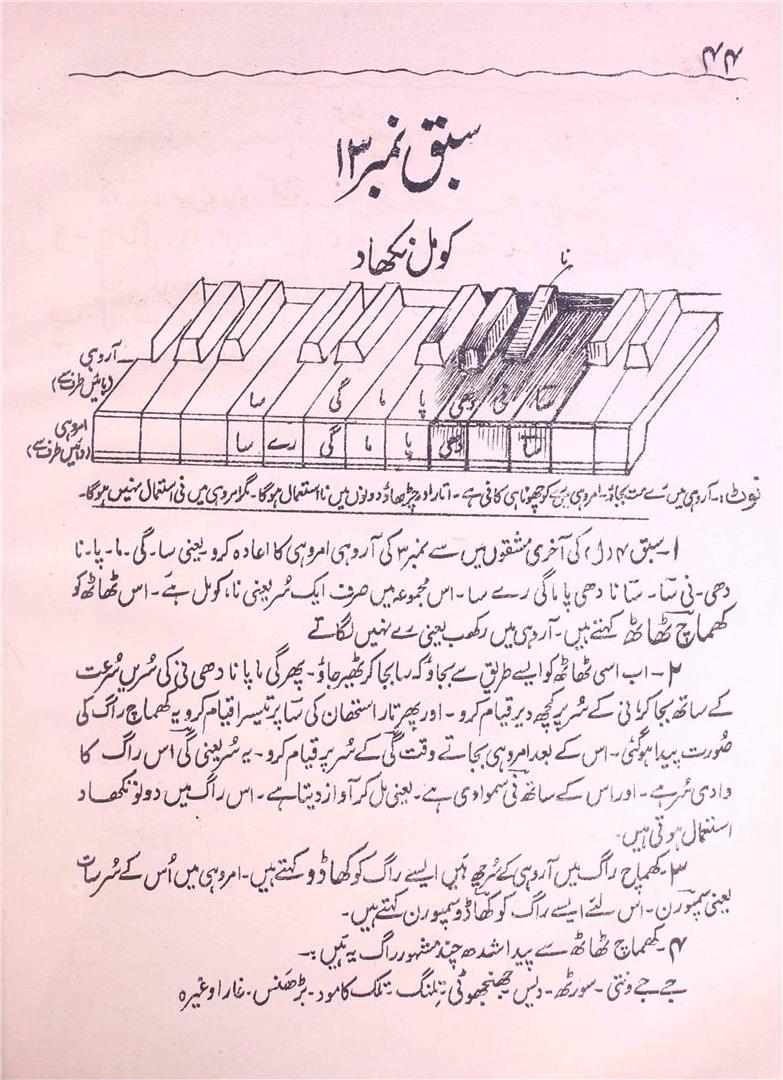 ۴۴
سبق نمبر ۱۳
کومل نکھاد
نا
آروہی
(بائیں طرف سے)
سا گی ما پا دھی نی سَا
امروہی
(دائیں طرف سے)
سا رے گی ما پا دھی سَا
نوٹ:۔ آروہی میں رے مت بجاؤ۔ امروہی میں رے کو چھونا ہی کافی ہے۔ اتار اور چڑھاؤ دونوں میں نا استعمال ہوگا۔ مگر امروہی میں نی استعمال نہیں ہوگا۔
۱۔ سبق ۴ (ل) کی آخری مشقوں میں سے نمبر ۳ کی آروہی امروہی کا اعادہ کرو۔ یعنی سا۔ گی۔ ما۔ پا۔ نا
دھی۔ نی سَا۔ سَا نا دھی پا ما گی رے سا۔ اس مجموعہ میں صرف ایک سُر یعنی نا، کومل ہے۔ اس ٹھاٹھ کو
کھماچ ٹھاٹھ کہتے ہیں۔ آروہی میں رکھب یعنی رے نہیں لگاتے
۲۔ اب اسی ٹھاٹھ کو ایسے طریق سے بجاؤ کہ سا بجا کر ٹھیر جاؤ۔ پھر گی ما پا نا دھی نی کی سُریں سُرعت
کے ساتھ بجا کر نی کے سُر پر کچھ دیر قیام کرو۔ اور پھر تار استھان کی سَا پر تیسرا قیام کرو یہ کھماچ راگ کی
صُورت پیدا ہو گئی۔ اس کے بعد امروہی بجاتے وقت گی کے سُر پر قیام کرو۔ یہ سُر یعنی گی اس راگ کا
وادی سُر ہے۔ اور اس کے ساتھ نی سموادی ہے۔ یعنی مل کر آواز دیتا ہے۔ اس راگ میں دونو نکھاد
استعمال ہوتی ہیں۔
۳۔ کھماچ راگ میں آروہی کے سُر چھ ہیں ایسے راگ کو کھاڈو کہتے ہیں۔ امروہی میں اُس کے سُر سات
یعنی سمپورن۔ اس لئے ایسے راگ کو کھاڈو سمپورن کہتے ہیں۔
۴۔ کھماچ ٹھاٹھ سے پیدا شدہ چند مشہور راگ یہ ہیں:۔
جے جے ونتی۔ سورٹھ۔ دیس۔ جھنجھوٹی۔ تِلنگ۔ تلک کامود۔ بڑھنس۔ غارا وغیرہ